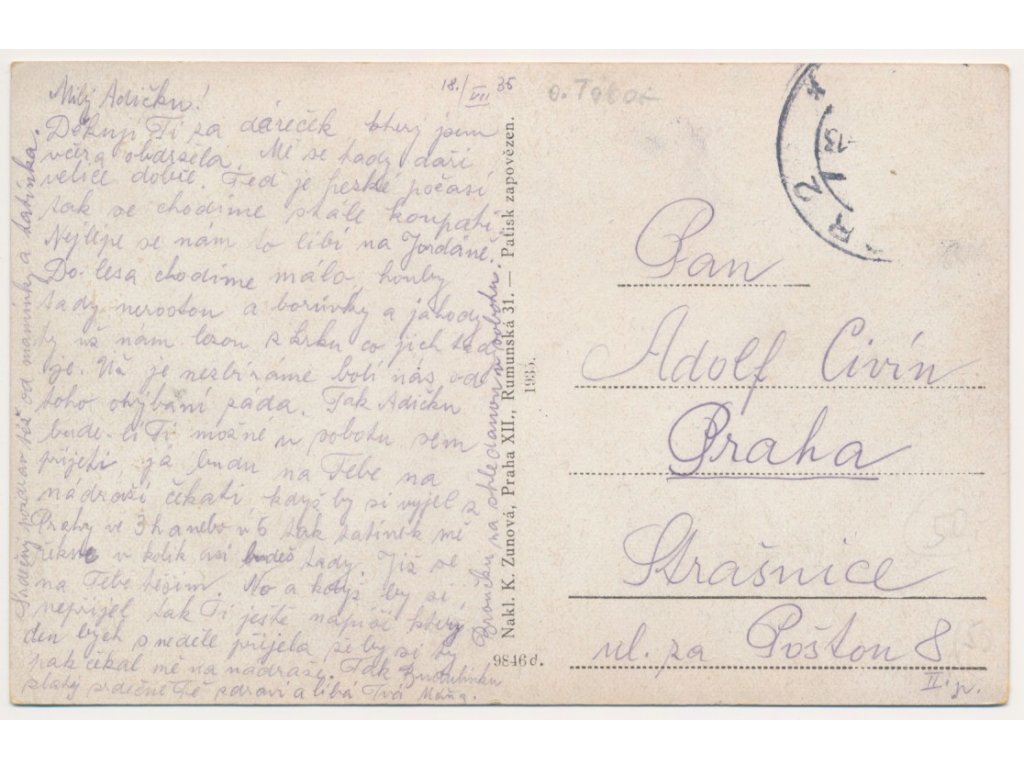 18./VII 35
Milý Adičku!
Děkuji Ti za dáreček který jsem
včera obdržela. Mě se tady daří
velice dobře. Teď je hezké počasí
tak se chodíme stále koupati.
Nejlépe se nám to líbí na Jordáně.
Do lesa chodíme málo, houby
tady nerostou a borůvky a jahody
ty už nám lezou z krku co jich tady
je. Už je nezbíráme bolí nás od
toho ohýbání záda. Tak Adičku
bude-li Ti možné v sobotu sem
přijeti já budu na Tebe na
nádraží čekati když by si vyjel z
Prahy ve 3 h anebo v 5 tak tatínek mě
řekne v kolik asi budeš tady. Již se
na Tebe těším. No a když by si
nepřijel tak Ti ještě napíši který
den bych s neděle přijela že by si ty
pak čekal mě na nádraží. Tak
zlatý srdečně Tě zdraví a líbá Tvá Máňa.
Srdečný pozdrav též od maminky a tatínka.
na shledanou v sobotu.
Nakl. K. Zunová, Praha XII., Rumunská 31. — Patisk zapovězen.
1935.
9846 d.
o. Tábor
Pan
Adolf Civín
Praha
Strašnice
ul. za Poštou 8
II. p.